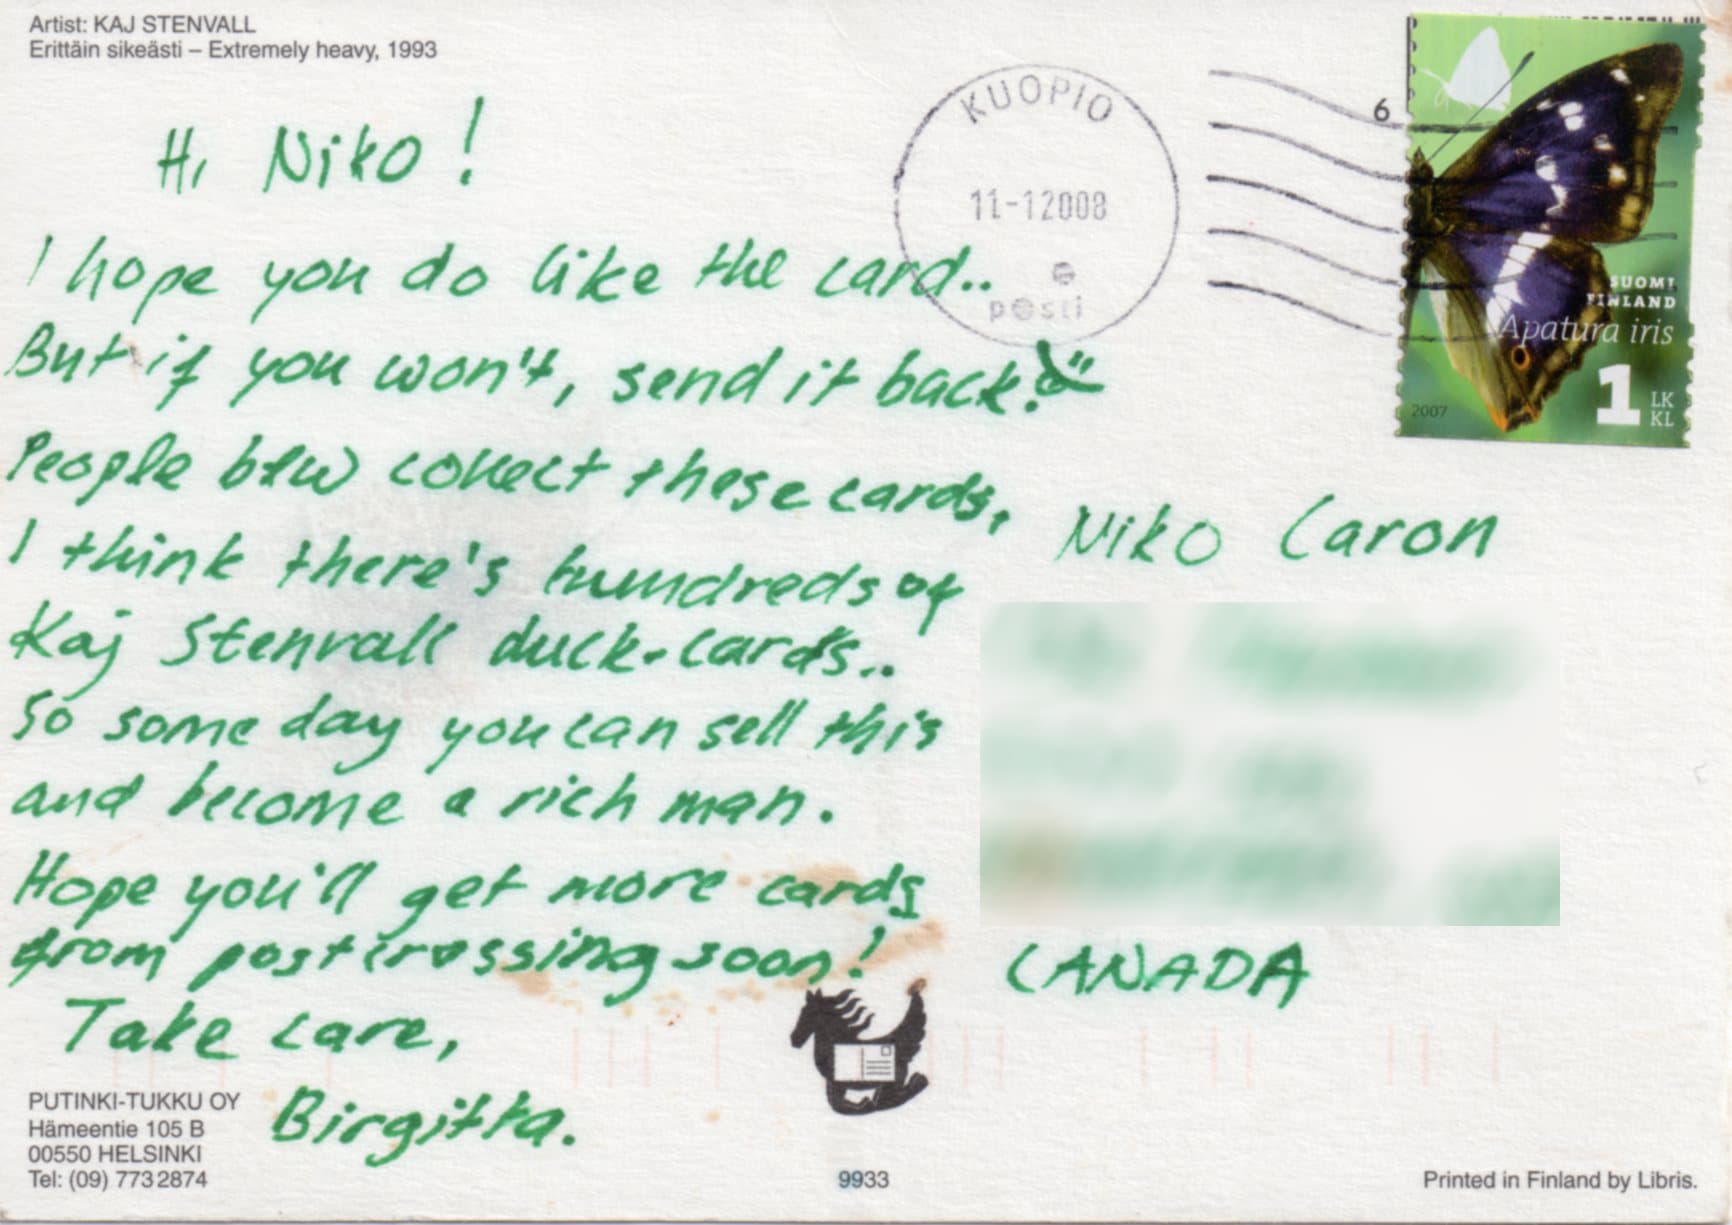 Artist: KAJ STENVALL
Erittäin sikeästi – Extremely heavy, 1993
KUOPIO
11-12008
posti
6
SUOMI
FINLAND
Apatura iris
1 LK
KL
2007
Hi Niko!
I hope you do like the card..
But if you won't, send it back!
People btw collect these cards,
I think there's hundreds of
Kaj Stenvall duck-cards..
So some day you can sell this
and become a rich man.
Hope you'll get more cards
from postcrossing soon!
Take care,
Birgitta.
Niko Caron
CANADA
PUTINKI-TUKKU OY
Hämeentie 105 B
00550 HELSINKI
Tel: (09) 773 2874
9933
Printed in Finland by Libris.